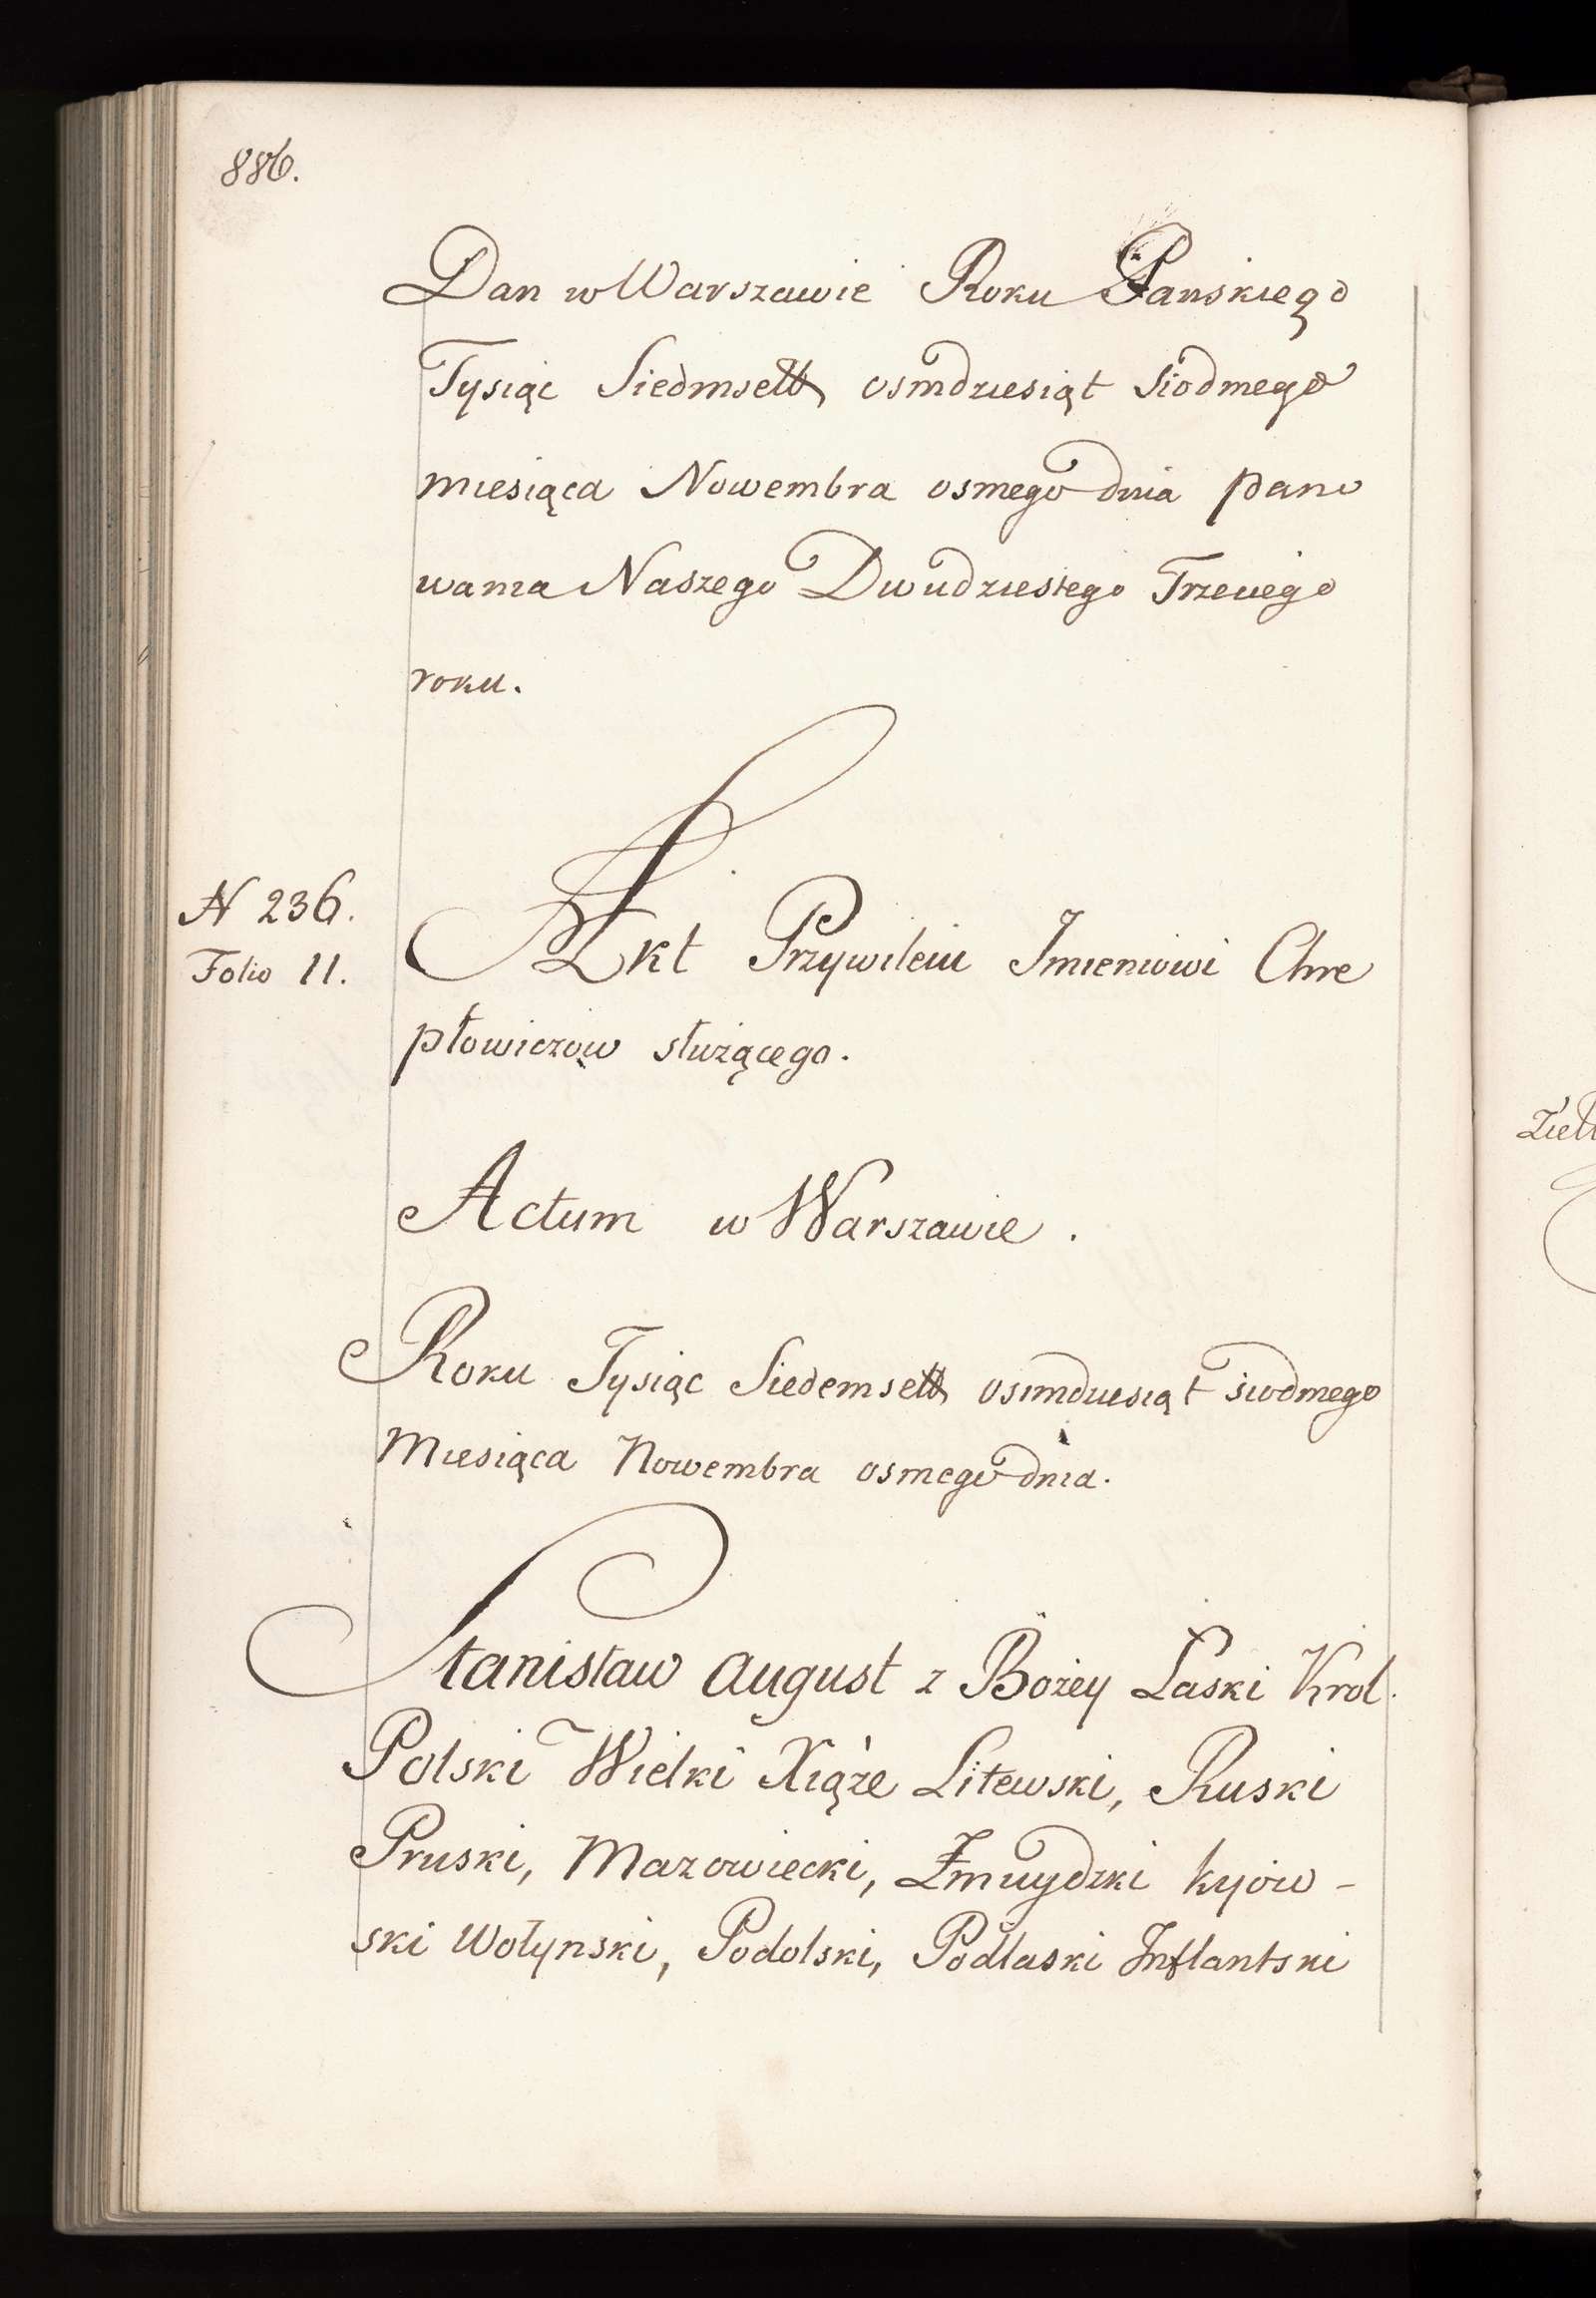 886.
Dan w Warszawie Roku Panskiego
Tysiąc Siedmsett osmdziesiąt Siodmego
miesiąca Nowembra osmego dnia pano
wania Naszego Dwudziestego Trzeciego
roku.
N 236.
Folio 11.
Akt Przywileiu Imieniowi Chre
płowiczow służącego.
Actum w Warszawie.
Roku Tysiąc Siedemsett osimdziesiąt siodmego
Miesiąca Nowembra osmego dnia.
Stanisław August z Bożey Łaski Krol.
Polski Wielki Xiąże Litewski, Ruski
Pruski, Mazowiecki, Żmuydzki kyiow-
ski Wołynski, Podolski, Podlaski Inflantski